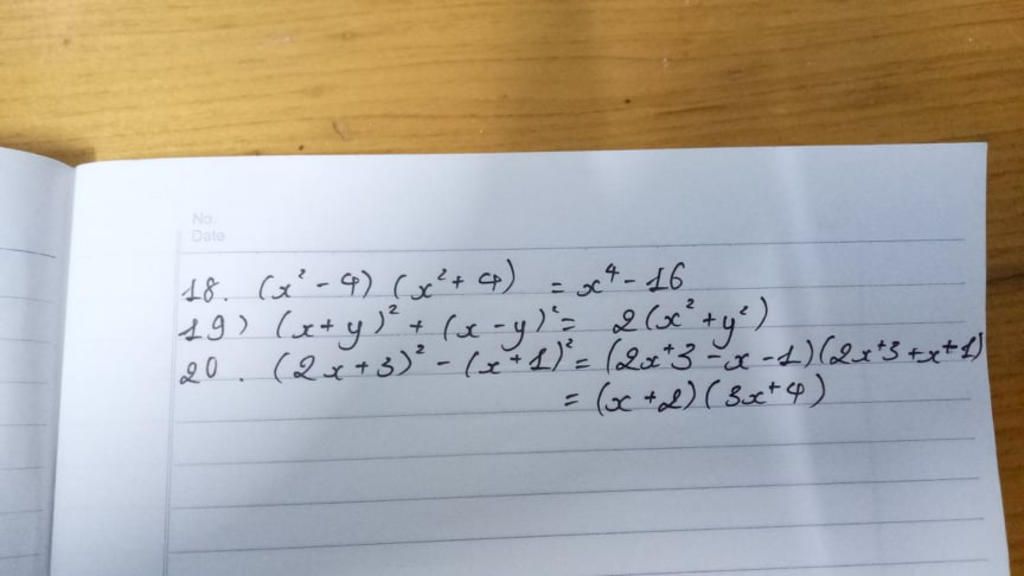 No.
Date
18. (x² - 4) (x² + 4) = x⁴ - 16
19) (x + y)² + (x - y)² = 2(x² + y²)
20. (2x + 3)² - (x + 1)² = (2x + 3 - x - 1)(2x + 3 + x + 1)
= (x + 2)(3x + 4)